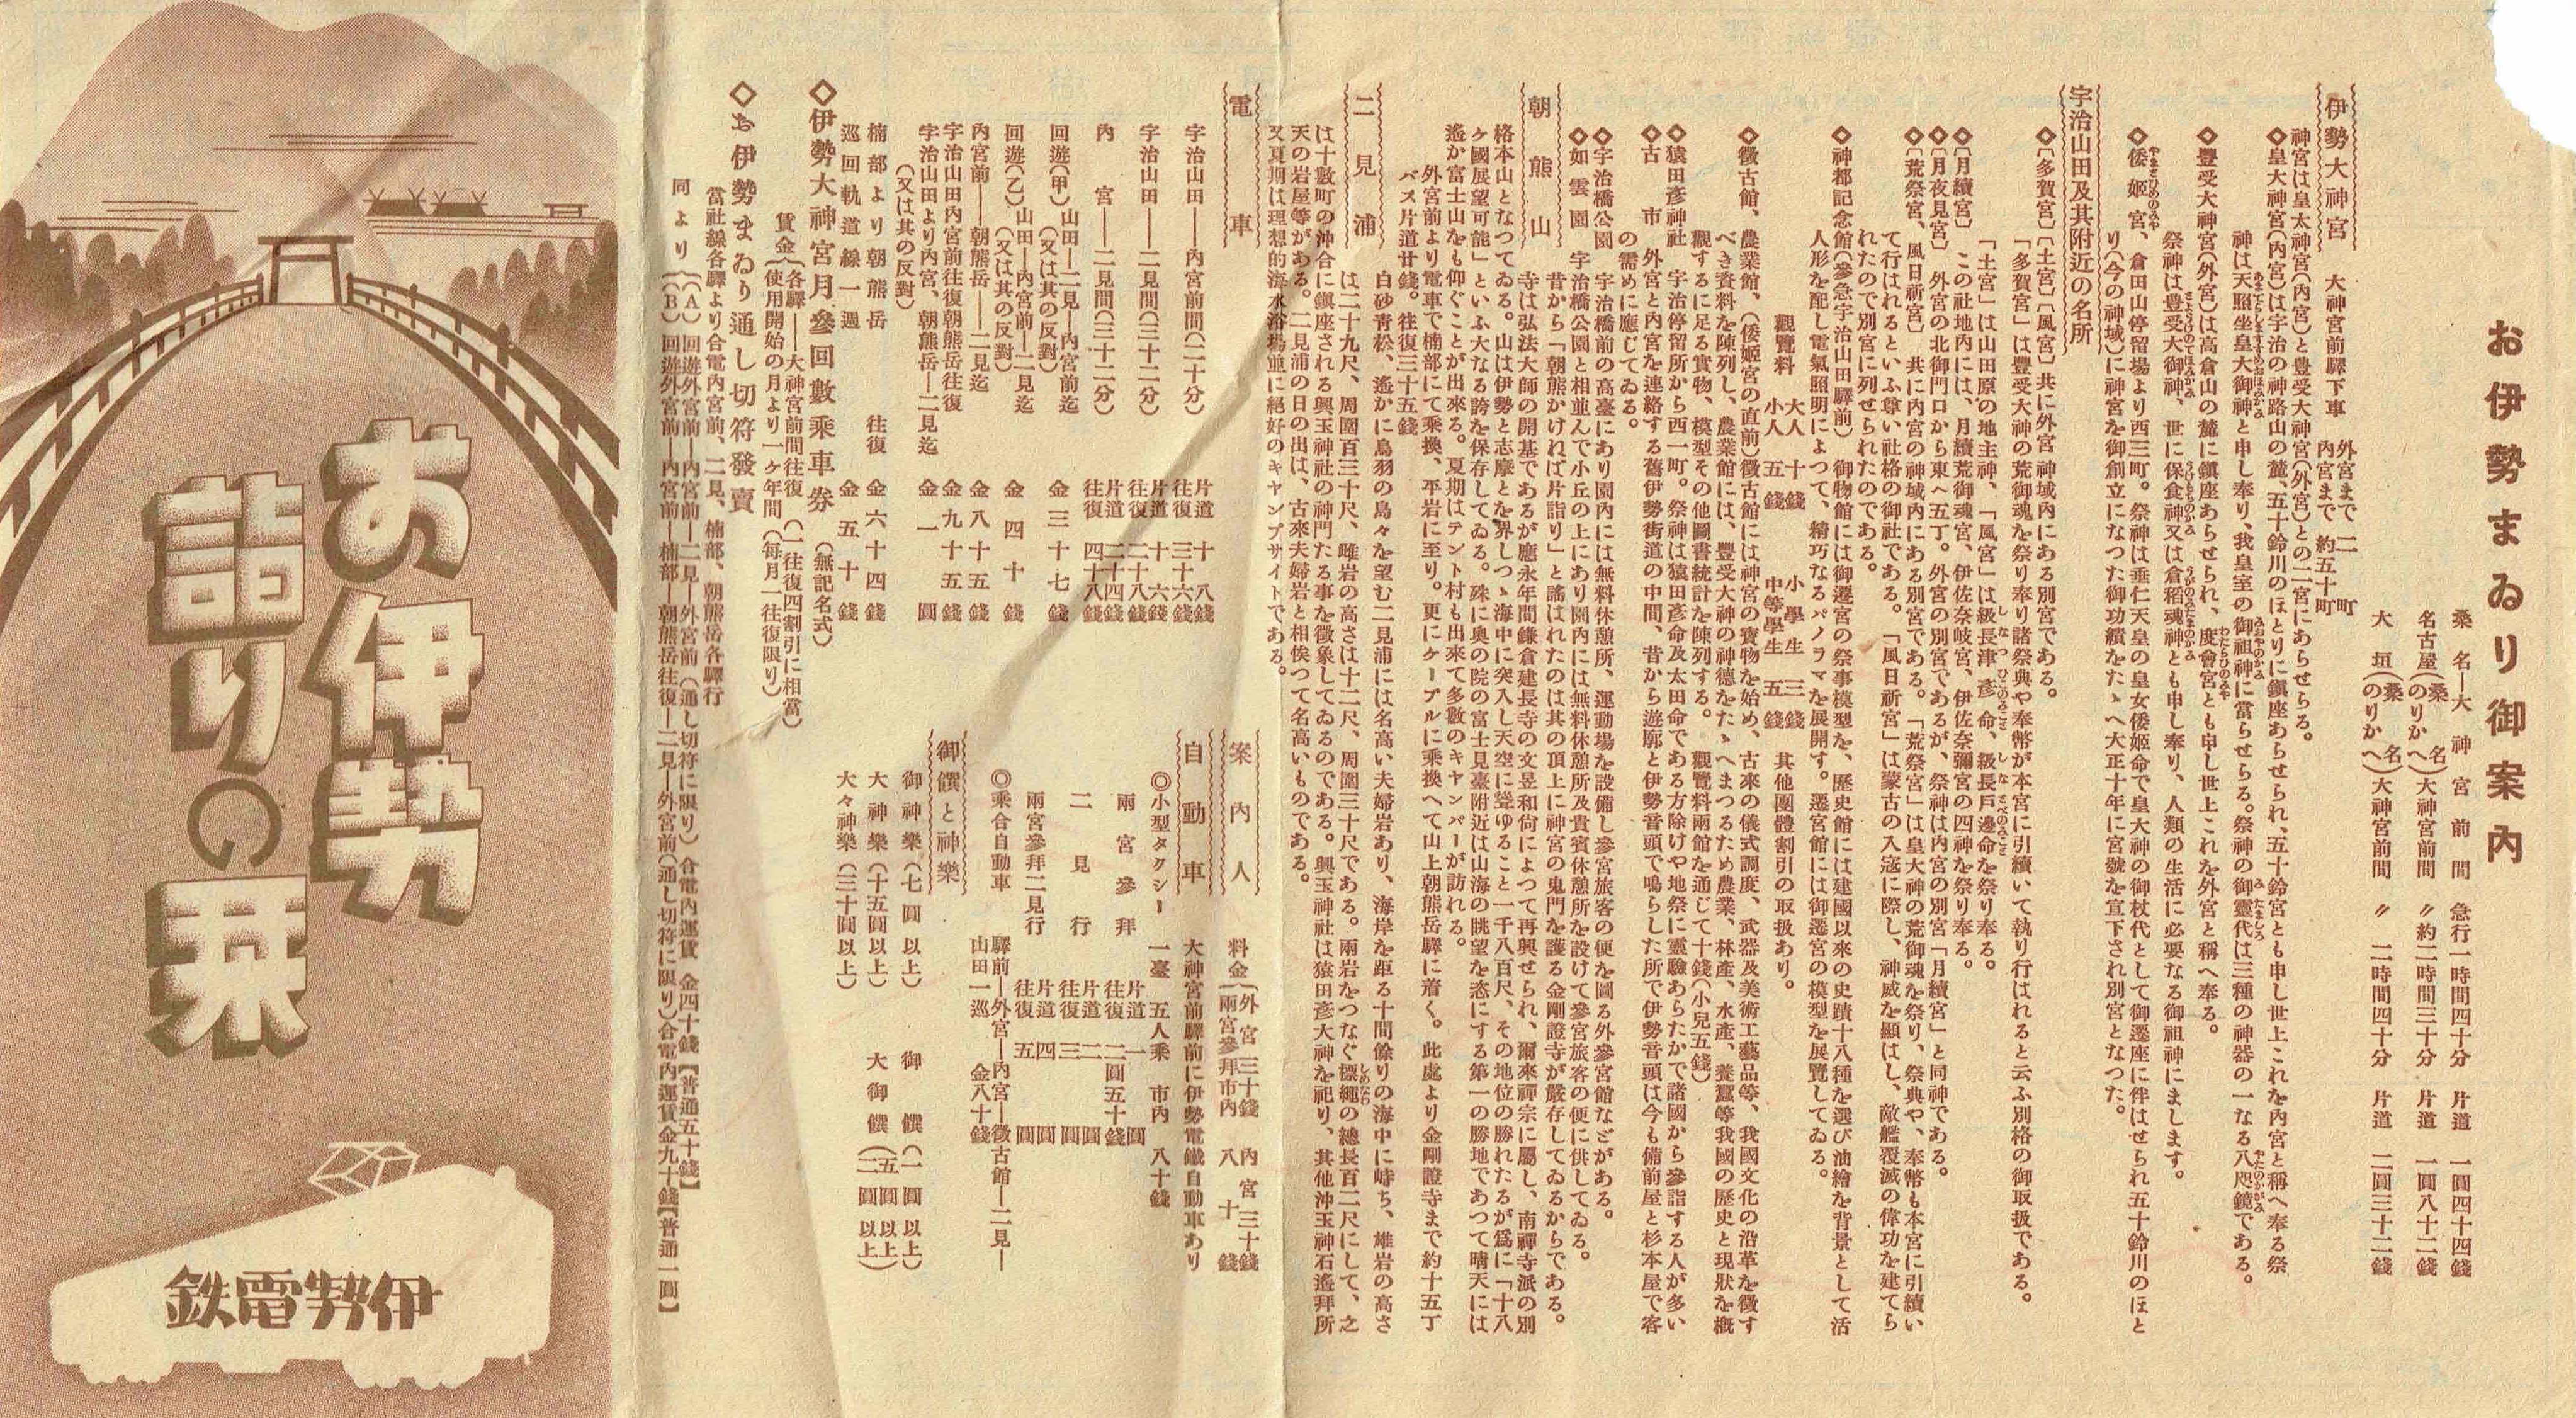 お伊勢まゐり御案内
桑名―大神宮前間 急行一時間四十分 片道 一圓四十四錢
名古屋(桑名のりかへ)大神宮前間 〃約二時間三十分 片道 一圓八十二錢
大垣(桑名のりかへ)大神宮前間 〃 二時間四十分 片道 二圓三十二錢
伊勢大神宮 大神宮前驛下車 外宮まで 二町 内宮まで 約五十町
神宮は皇太神宮(内宮)と豐受大神宮(外宮)との二宮にあらせらる。
◇皇大神宮(内宮)は宇治の神路山の麓、五十鈴川のほとりに鎭座あらせられ、五十鈴宮とも申し世上これを内宮と稱へ奉る祭
神は天照坐皇大御神と申し奉り、我皇室の御祖神に當らせらる。祭神の御靈代は三種の神器の一なる八咫鏡である。
◇豐受大神宮(外宮)は高倉山の麓に鎭座あらせられ、度會宮とも申し世上これを外宮と稱へ奉る。
祭神は豐受大御神、世に保食神又は倉稻魂神とも申し奉り、人類の生活に必要なる御祖神にまします。
◇倭姫宮、倉田山停留場より西三町。祭神は垂仁天皇の皇女倭姫命で皇大神の御杖代として御遷座に伴はせられ五十鈴川のほと
り(今の神域)に神宮を御創立になつた御功績をたゝへ大正十年に宮號を宣下され別宮となつた。
宇治山田及其附近の名所
◇〔多賀宮〕〔土宮〕〔風宮〕共に外宮神域内にある別宮である。
「多賀宮」は豐受大神の荒御魂を祭り奉り諸祭典や奉幣が本宮に引續いて執り行はれると云ふ別格の御取扱である。
「土宮」は山田原の地主神、「風宮」は級長津彥命、級長戸邊命を祭り奉る。
◇〔月續宮〕 この社地内には、月續荒御魂宮、伊佐奈岐宮、伊佐奈彌宮の四神を祭り奉る。
◇〔月夜見宮〕 外宮の北御門口から東へ五丁。外宮の別宮であるが、祭神は内宮の別宮「月續宮」と同神である。
◇〔荒祭宮、風日祈宮〕 共に内宮の神域内にある別宮である。「荒祭宮」は皇大神の荒御魂を祭り、祭典や、奉幣も本宮に引續い
て行はれるといふ尊い社格の御社である。「風日祈宮」は蒙古の入寇に際し、神威を顯はし、敵艦覆滅の偉功を建てら
れたので別宮に列せられたのである。
◇神都記念館(參急宇治山田驛前) 御物館には御遷宮の祭事模型を、歷史館には建國以來の史蹟十八種を選び油繪を背景として活
人形を配し電氣照明によつて、精巧なるパノラマを展開す。遷宮館には御遷宮の模型を展覽してゐる。
觀覽料 大人 十錢 小人 五錢 小學生 三錢 中等學生 五錢 其他團體割引の取扱あり。
◇徵古館、農業館、(倭姫宮の直前)徵古館には神宮の寶物を始め、古來の儀式調度、武器及美術工藝品等、我國文化の沿革を徵す
べき資料を陳列し、農業館には、豐受大神の神德をたゝへまつるため農業、林產、水產、養蠶等我國の歷史と現狀を槪
觀するに足る實物、模型その他圖書統計を陳列する。 觀覽料兩館を通じて十錢(小兒五錢)
◇猿田彥神社 宇治停留所から西一町。祭神は猿田彥命及太田命である方除けや地祭に靈驗あらたかで諸國から參詣する人が多い
◇古市 外宮と内宮を連絡する舊伊勢街道の中間、昔から遊廓と伊勢音頭で鳴らした所で伊勢音頭は今も備前屋と杉本屋で客
の需めに應じてゐる。
◇宇治橋公園 宇治橋前の高臺にあり園内には無料休憩所、運動場を設備し參宮旅客の便を圖る外參宮館などがある。
◇如雲園 宇治橋公園と相並んで小丘の上にあり園内には無料休憩所及貴賓休憩所を設けて參宮旅客の便に供してゐる。
朝熊山 昔から「朝熊かければ片詣り」と謠はれたのは其の頂上に神宮の鬼門を護る金剛證寺が嚴存してゐるからである。
寺は弘法大師の開基であるが應永年間鎌倉建長寺の文昱和尙によつて再興せられ、爾來禪宗に屬し、南禪寺派の別
格本山となつてゐる。山は伊勢と志摩とを界しつゝ海中に突入し天空に聳ゆること一千八百尺、その地位の勝れたるが爲に「十八
ケ國展望可能」といふ大なる誇を保存してゐる。殊に奥の院の富士見臺附近は山海の眺望を恣にする第一の勝地であつて晴天には
遙か富士山をも仰ぐことが出來る。夏期はテント村も出來て多數のキャンパーが訪れる。
外宮前より電車で楠部にて乘換、平岩に至り。更にケーブルに乘換へて山上朝熊岳驛に着く。此處より金剛證寺まで約十五丁
バス片道廿錢。往復三十五錢
二見浦 白砂靑松、遙かに鳥羽の島々を望む二見浦には名高い夫婦岩あり、海岸を距る十間餘りの海中に峙ち、雄岩の高さ
は二十九尺、周圍百三十尺、雌岩の高さは十二尺、周圍三十尺である。兩岩をつなぐ標繩の總長百二尺にして、之
は十數町の沖合に鎭座される興玉神社の神門たる事を徵象してゐるのである。興玉神社は猿田彥大神を祀り、其他沖玉神石遙拜所
天の岩屋等がある。二見浦の日の出は、古來夫婦岩と相俟つて名高いものである。
又夏期は理想的海水浴場並に絕好のキャンプサイトである。
電車
宇治山田――内宮前間(二十分) 片道 十八錢 往復 三十六錢
宇治山田――二見間(三十二分) 片道 十六錢 往復 二十八錢
内宮――二見間(三十二分) 片道 二十四錢 往復 四十八錢
回遊(甲) 山田―二見―内宮前迄 (又は其の反對) 金三十七錢
回遊(乙) 山田―内宮前―二見迄 (又は其の反對) 金四十錢
内宮前――朝熊岳――二見迄 金八十五錢
宇治山田内宮前往復朝熊岳往復 金九十五錢
宇治山田より内宮、朝熊岳―二見迄 (又は其の反對) 金一圓
楠部より朝熊岳 往復 金六十四錢
巡回軌道線一週 金五十錢
◇伊勢大神宮月參回數乘車券 (無記名式)
賃金 各驛――大神宮前間往復 (一往復四割引に相當)
使用開始の月より一ケ年間 (每月一往復限り)
◇お伊勢まゐり通し切符發賣
當社線各驛より合電内宮前、二見、楠部、朝熊岳各驛行
同より (A) 回遊外宮前―内宮前―二見―外宮前 (通し切符に限り) 合電内運賃 金四十錢【普通五十錢】
(B) 回遊外宮前―内宮前―楠部―朝熊岳往復―二見―外宮前(通し切符に限り)合電内運賃金九十錢【普通一圓】
案内人 料金 外宮 三十錢 内宮 三十錢 兩宮參拜市内 八十錢
自動車 大神宮前驛前に伊勢電鐵自動車あり
◎小型タクシー 一臺 五人乘 市内 八十錢
兩宮參拜 片道 一圓 往復 二圓五十錢
二見行 片道 二圓 往復 三圓
兩宮參拜二見行 片道 四圓 往復 五圓
◎乘合自動車 驛前―外宮―内宮―徵古館―二見―
山田一巡 金八十錢
御饌と神樂
御神樂(七圓以上) 御饌(一圓以上)
大神樂(十五圓以上) 大御饌(五圓以上)(二圓以上)
大々神樂(三十圓以上)
お伊勢
詣りの栞
伊勢電鉄